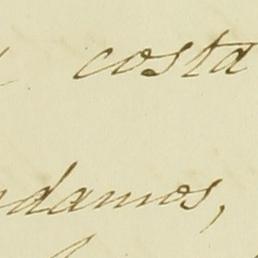 costa
damos,